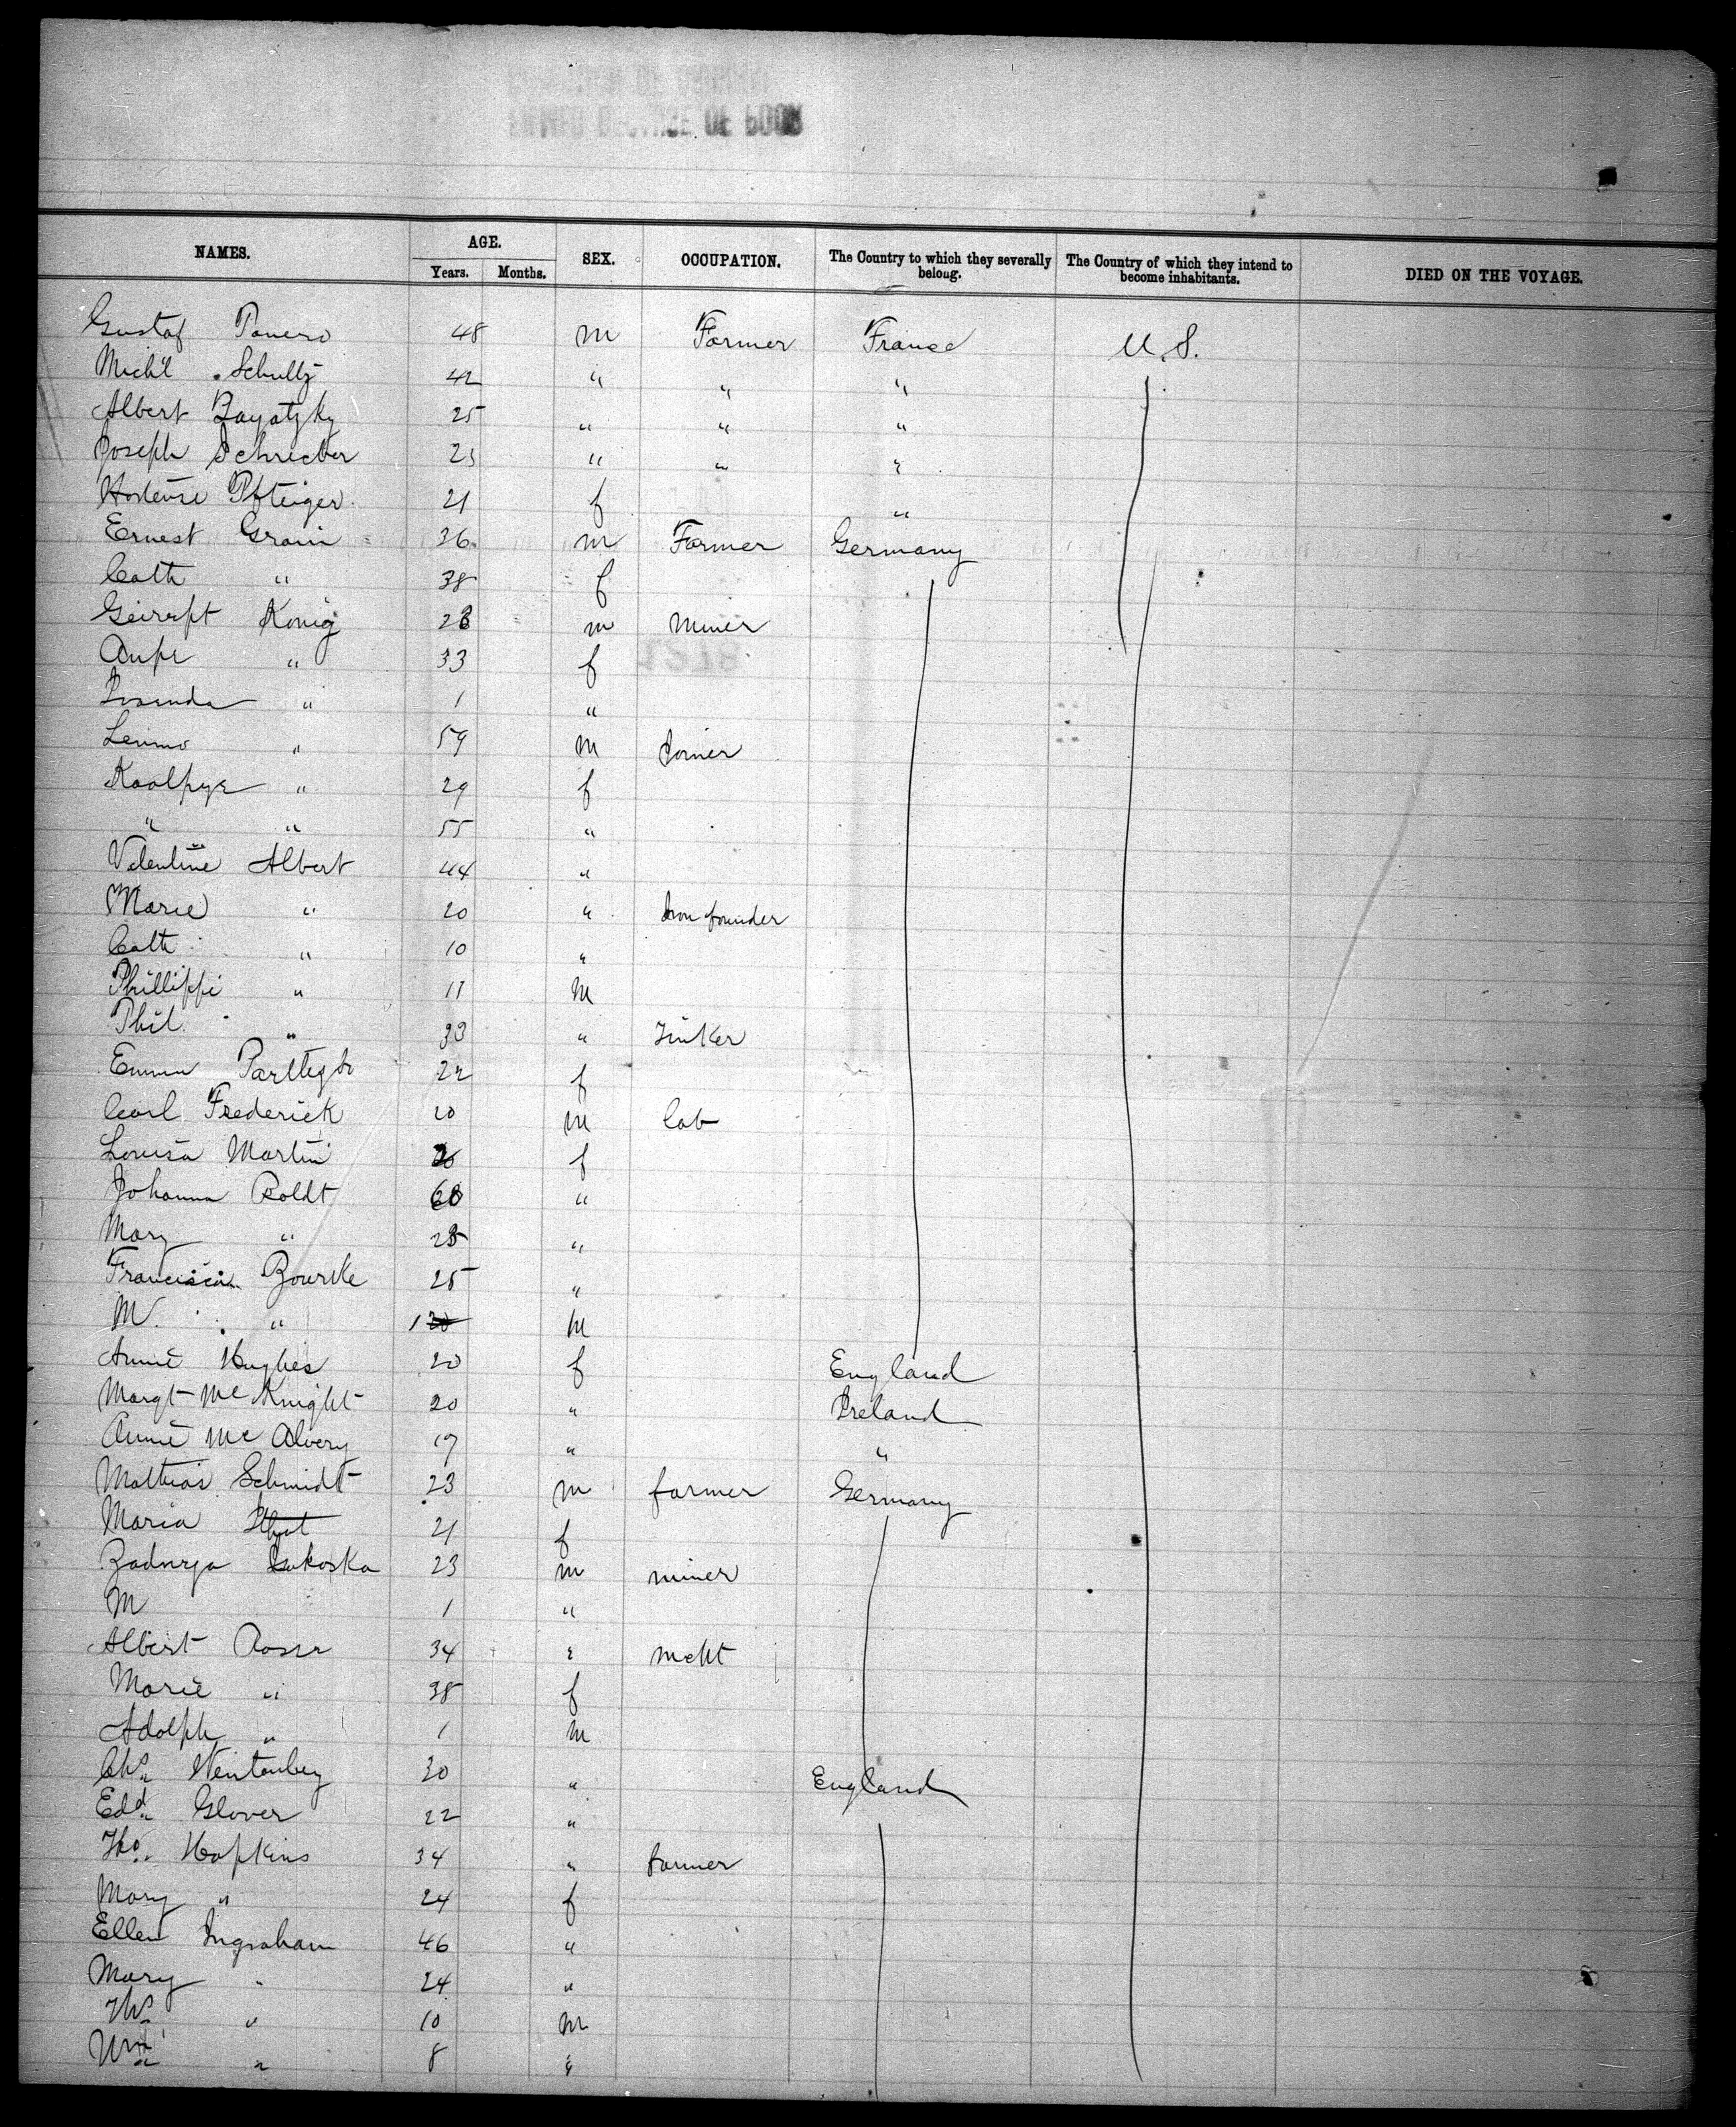 NAMES. AGE. SEX. OCCUPATION. The Country to which they severally belong. The Country of which they intend to become inhabitants. DIED ON THE VOYAGE.
Years. Months.
Gustaf 48 m Farmer France U.S.
Mich'l Schultz 42 " " "
Albert 25 " " "
Joseph Schrieber 23 " " "
Hortense Pfleiger 21 f "
Ernest Grain 36 m Farmer Germany
Cath " 38 f
König 28 m Miner
" 33 f
" 1 "
" 59 m Joiner
" 29 f
" " 55 "
Valentine Albert 44 "
Marie " 20 " Iron founder
Cath " 10 "
Phillippi " 11 m
Phil " 33 " Tinker
Emma 22 f
Carl Frederick 20 m Lab
Louisa Martin f
Johanna Roldt 60 "
Mary " 25 "
Francisca Bourke 25 "
M " 1 m
Annie Hughes 20 f England
Margt McKnight 20 " Ireland
Annie Mc Alvery 19 " "
Mathias Schmidt 23 m farmer Germany
Maria 21 f
Zadurga 23 m miner
M 1 "
Albert Roser 34 " mcht
Marie " 38 f
Adolph " 1 m
Chs 30 " England
Edd Glover 22 "
Tho. Hopkins 34 " farmer
Mary " 24 f
Ellen Ingraham 46 "
Mary " 24 "
Ths " 10 m
Wm " 8 "